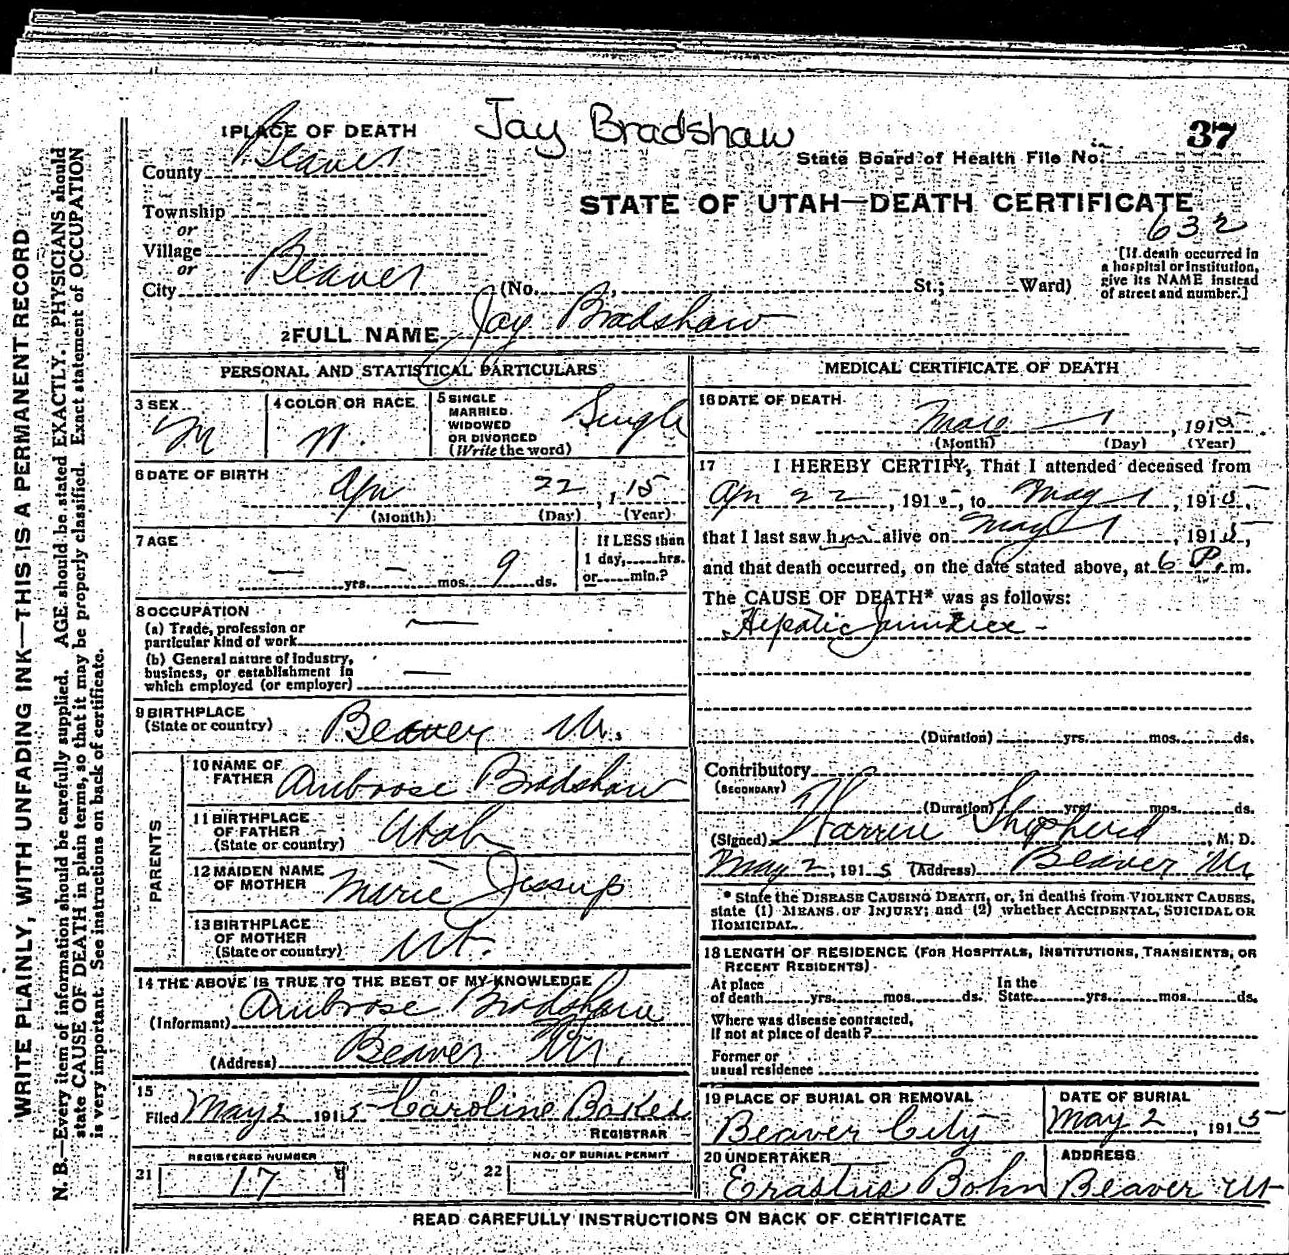 Jay Bradshaw
37
1 PLACE OF DEATH
State Board of Health File No.
County Beaver
STATE OF UTAH—DEATH CERTIFICATE
Township
632
or
Village
or
City Beaver (No. , St.; Ward)
[If death occurred in
a hospital or institution,
give its NAME instead
of street and number.]
2 FULL NAME Jay Bradshaw
PERSONAL AND STATISTICAL PARTICULARS
3 SEX
M
4 COLOR OR RACE
5 SINGLE
MARRIED
WIDOWED
OR DIVORCED
(Write the word)
Single
6 DATE OF BIRTH
Apr 22, 1 15
(Month) (Day) (Year)
7 AGE
— yrs. — mos. 9 ds.
If LESS than
1 day, hrs.
or min.?
8 OCCUPATION
(a) Trade, profession or
particular kind of work —
(b) General nature of industry,
business, or establishment in
which employed (or employer) —
9 BIRTHPLACE
(State or country) Beaver Ut.
PARENTS
10 NAME OF
FATHER Ambrose Bradshaw
11 BIRTHPLACE
OF FATHER
(State or country) Utah
12 MAIDEN NAME
OF MOTHER Marie Jessup
13 BIRTHPLACE
OF MOTHER
(State or country) Ut.
14 THE ABOVE IS TRUE TO THE BEST OF MY KNOWLEDGE
(Informant) Ambrose Bradshaw
(Address) Beaver Ut.
15
Filed May 2 1915 Caroline Baker
REGISTRAR
REGISTERED NUMBER
21 17
NO. OF BURIAL PERMIT
22
MEDICAL CERTIFICATE OF DEATH
16 DATE OF DEATH
1, 1915
(Month) (Day) (Year)
17 I HEREBY CERTIFY, That I attended deceased from
Apr 22, 1915, to May 1, 1915,
that I last saw him alive on May 1, 1915,
and that death occurred, on the date stated above, at 6 P. m.
The CAUSE OF DEATH* was as follows:
Hepatic Jaundice -
(Duration) yrs. mos. ds.
Contributory
(SECONDARY)
(Duration) yrs. mos. ds.
(Signed) Warren Shepherd, M. D.
May 2, 1915 (Address) Beaver Ut
* State the DISEASE CAUSING DEATH, or, in deaths from VIOLENT CAUSES,
state (1) MEANS OF INJURY; and (2) whether ACCIDENTAL, SUICIDAL OR
HOMICIDAL.
18 LENGTH OF RESIDENCE (FOR HOSPITALS, INSTITUTIONS, TRANSIENTS, OR
RECENT RESIDENTS).
At place
of death yrs. mos. ds.
In the
State yrs. mos. ds.
Where was disease contracted,
If not at place of death?
Former or
usual residence
19 PLACE OF BURIAL OR REMOVAL
Beaver City
DATE OF BURIAL
May 2, 1915
20 UNDERTAKER
Erastus Bohn
ADDRESS
Beaver Ut
READ CAREFULLY INSTRUCTIONS ON BACK OF CERTIFICATE
WRITE PLAINLY, WITH UNFADING INK—THIS IS A PERMANENT RECORD
N. B.—Every item of information should be carefully supplied. AGE should be stated EXACTLY. PHYSICIANS should
state CAUSE OF DEATH in plain terms, so that it may be properly classified. Exact statement of OCCUPATION
is very important. See instructions on back of certificate.